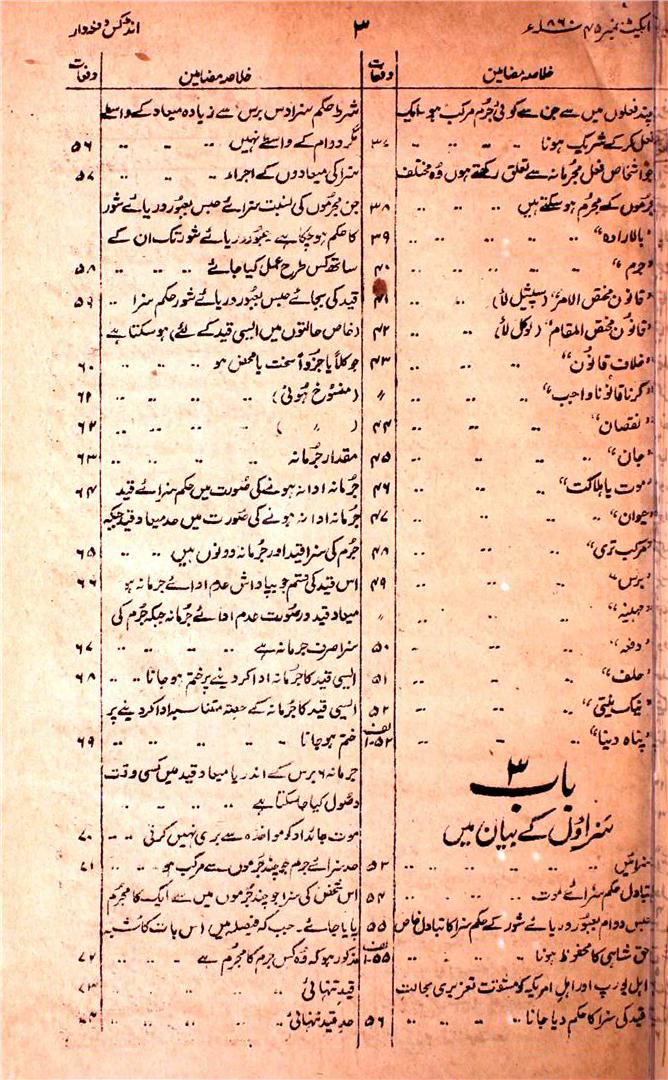 ایکٹ نمبر ۴۵ ۱۸۶۰ء
۳
انڈکس دفعہ وار
خلاصہ مضامین
دفعات
چند فعلوں میں سے جن سے کوئی جرم مرکب ہو ایک
فعل کرکے شریک ہونا ۳۷
جو اشخاص فعل مجرمانہ سے تعلق رکھتے ہوں وہ مختلف
جرموں کے مجرم ہوسکتے ہیں ۳۸
"بالارادہ" ۳۹
"جرم" ۴۰
"قانون مختص الامر" (سپیشل لا) ۴۱
"قانون مختص المقام" (لوکل لا) ۴۲
"خلاف قانون" ۴۳
"کرنا قانونا واجب" 〃
"نقصان" ۴۴
"جان" ۴۵
"موت یا ہلاکت" ۴۶
"حیوان" ۴۷
"مرکب تری" ۴۸
"برس" ۴۹
"مہینہ" 〃
"دفعہ" ۵۰
"حلف" ۵۱
"نیک نیتی" ۵۲
"پناہ دینا" ۵۲-الف
باب ۳
سزاؤں کے بیان میں
سزائیں ۵۳
تبادل حکم سزائے موت ۵۴
حبس دوام بعبور دریائے شور کے حکم سزا کا تبادل خاص ۵۵
حق شاہی کا محفوظ ہونا ۵۵-الف
اہل یورپ اور اہل امریکہ کو مشقت تعزیری بحالت
قید کی سزا کا حکم دیا جانا ۵۶
خلاصہ مضامین
دفعات
شرط حکم سزا دس برس سے زیادہ میعاد کے واسطے
مگر دوام کے واسطے نہیں ۵۶
سزا کی میعادوں کے اجراء ۵۷
جن مجرموں کی نسبت سزائے حبس بعبور دریائے شور
کا حکم ہوچکا ہے عبور دریائے شور تک ان کے
ساتھ کس طرح عمل کیا جائے ۵۸
قید کی بجائے حبس بعبور دریائے شور حکم سزا ۵۹
(خاص حالتوں میں ایسی قید کے لئے) ہوسکتا ہے
جو کلاً یا جزواً سخت یا محض ہو ۶۰
(منسوخ ہوئی) ۶۱
( 〃 ) ۶۲
مقدار جرمانہ ۶۳
جرمانہ ادا نہ ہونے کی صورت میں حکم سزائے قید ۶۴
جرمانہ ادا نہ ہونے کی صورت میں حد میعاد قید جبکہ
جرم کی سزا قید اور جرمانہ دونوں ہیں ۶۵
اس قید کی قسم جو بپاداش عدم ادائے جرمانہ ہو ۶۶
میعاد قید در صورت عدم ادائے جرمانہ جبکہ جرم کی
سزا صرف جرمانہ ہے ۶۷
ایسی قید کا جرمانہ ادا کردینے پر ختم ہوجانا ۶۸
ایسی قید کا جرمانہ کے حصہ متناسبہ ادا کردینے پر
ختم ہوجانا ۶۹
جرمانہ ۶ برس کے اندر یا میعاد قید میں کسی وقت
وصول کیا جاسکتا ہے
موت جائداد کو مواخذہ سے بری نہیں کرتی ۷۰
حد سزائے جرم جو چند جرموں سے مرکب ہو ۷۱
اس شخص کی سزا جو چند جرموں میں سے ایک کا مجرم
پایا جائے۔ جب کہ فیصلہ میں اس بات کا شبہ
مذکور ہو کہ وہ کس جرم کا مجرم ہے ۷۲
قید تنہائی ۷۳
حد قید تنہائی ۷۴